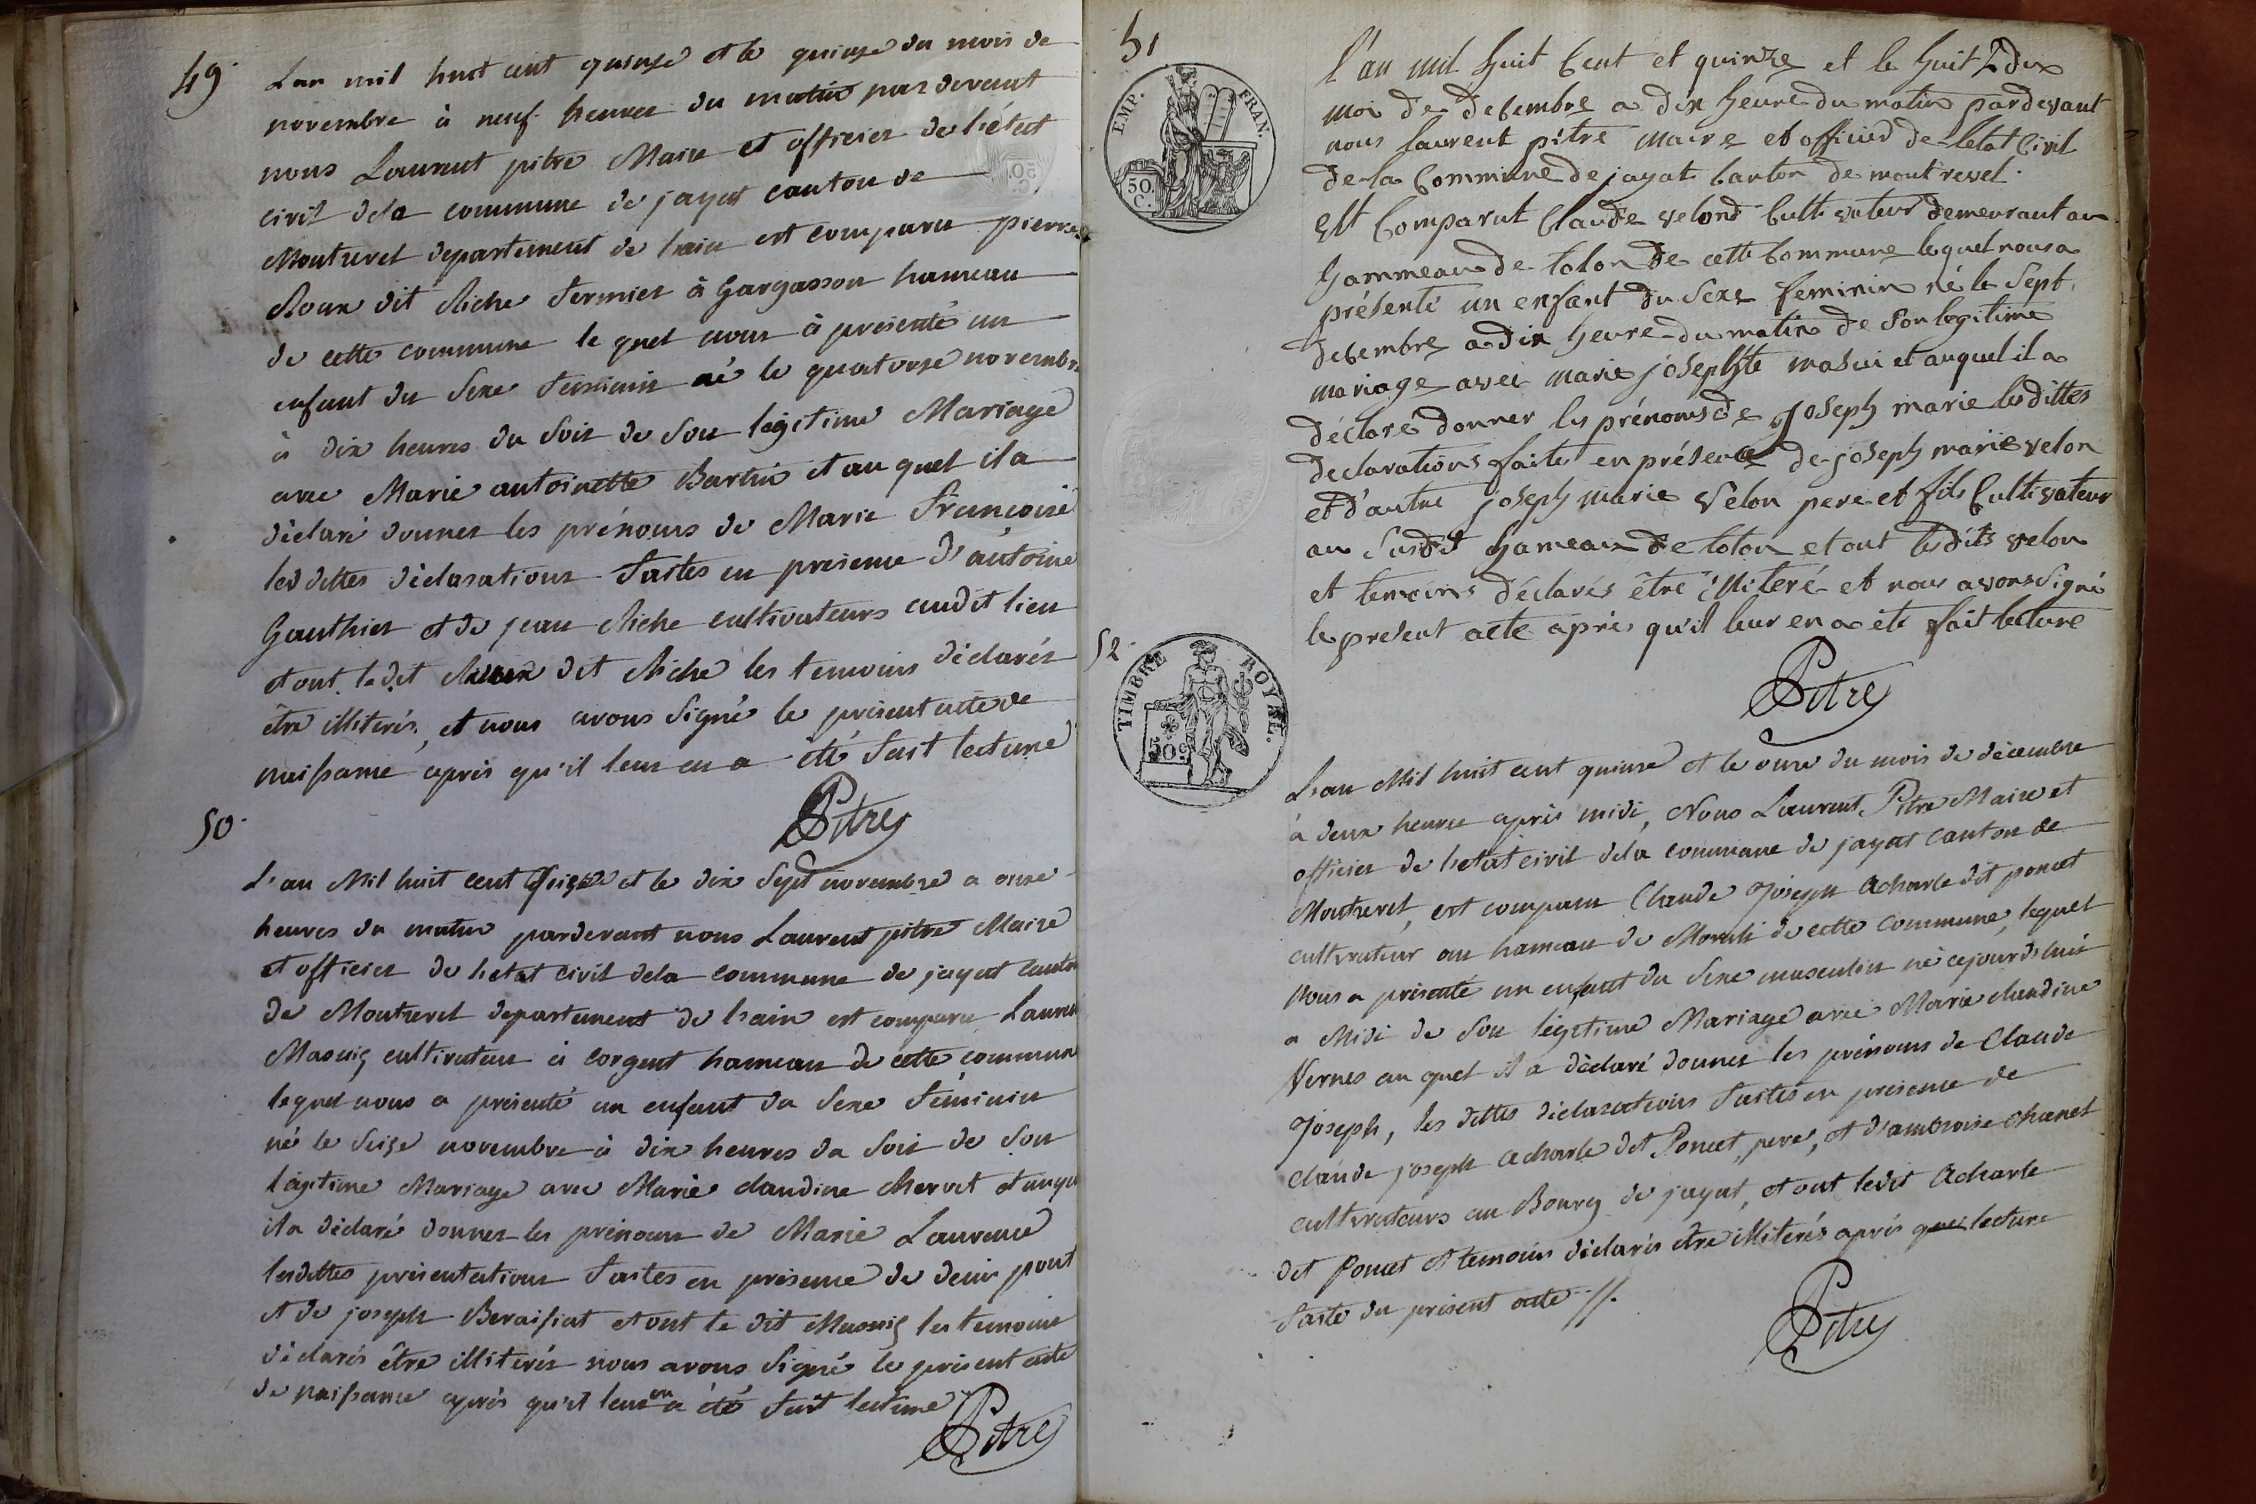 49.
L'an mil huit cent quinze et le quinze du mois de
novembre à neuf heures du matin par devant
nous Laurent pitre Maire et officier de l'état
civil dela commune de jayat canton de
Montrevel departement de l'ain est comparu pierre
Roux dit Riche fermier à Gargasson hameau
de cette commune le quel nous à présenté un
enfant du Sexe feminin né le quatorze novembre
à dix heures du Soir de Son légitime Mariage
avec Marie antoinette Bertin et au quel il a
déclaré donner les prénoms de Marie Françoise
les dittes déclarations faites en presence d'antoine
Gauthier et de jean Riche cultivateurs audit lieu
et ont le dit Roux dit Riche les temoins déclarés
être illiterés, et nous avons Signé le présent acte de
naissance après qu'il leur en a été fait lecture
Pitre
50.
L'an Mil huit cent quinze et le dix Sept novembre a onze
heures du matin pardevant nous Laurent pitre Maire
et officier de l'etat civil dela commune de jayat canton
de Montrevel departement de l'ain est comparu Laurent
Masuiz cultivateur à Corgent hameau de cette commune
lequel nous a présenté un enfant du Sexe féminin
né le Seize novembre à dix heures du Soir de Son
légitime Mariage avec Marie claudine chervet et auquel
il a déclaré donner les prénoms de Marie Laurence
lesdittes présentations faites en présence de denis pont
et de joseph Beraifiat et ont le dit Masuiz les temoins
déclarés être illiterés nous avons Signé le présent acte
de naissance après qu'il leur en a été fait lecture
Pitre
51
EMP. FRAN.
50.
C.
l'an mil huit Cent et quinze et le huit du
moi de decembre a dix heure du matin pardevant
nous laurent pitre maire et officier de Letat Civil
de la Commune de jayat Canton de montrevel.
est Comparut Claude velond Cultivateur demeurant au
hammeau de tolon de cette Commune lequel nous a
présenté un enfant du Sexe feminin né le Sept
decembre a dix heure du matin de Son legitime
mariage avec marie josephte masui et auquel il a
déclaré donner les prénoms de Joseph marie lesdittes
declarations faite en présence de joseph marie velon
et d'autre joseph marie Velon pere et fils Cultivateur
au Susdit hameau de tolon et ont lesdits velon
et temoins déclarés être illiteré et nous avons Signé
le present acte après qu'il leur en a été fait lecture
Pitre
52.
TIMBRE ROYAL.
50c
L'an Mil huit cent quinze et le onze du mois de décembre
à deux heures après midi, Nous Laurent Pitre Maire et
officier de l'etat civil dela commune de jayat canton de
Montrevel, est comparu Claude Joseph acharle dit poncet
cultivateur au hameau de Morali de cette Commune, lequel
nous a présenté un enfant du Sexe masculin né cejourd'hui
a Midi de Son légitime Mariage avec Marie claudine
Vernes au quel il a déclaré donner les prénoms de Claude
Joseph, les dittes déclarations faites en présence de
claude joseph acharle dit Poncet, pere, et d'ambroise chanel
cultivateurs au Bourg de jayat, et ont ledit acharle
dit Poncet et temoins déclarés être illiterés après que lecture
faite du présent acte //.
Pitre